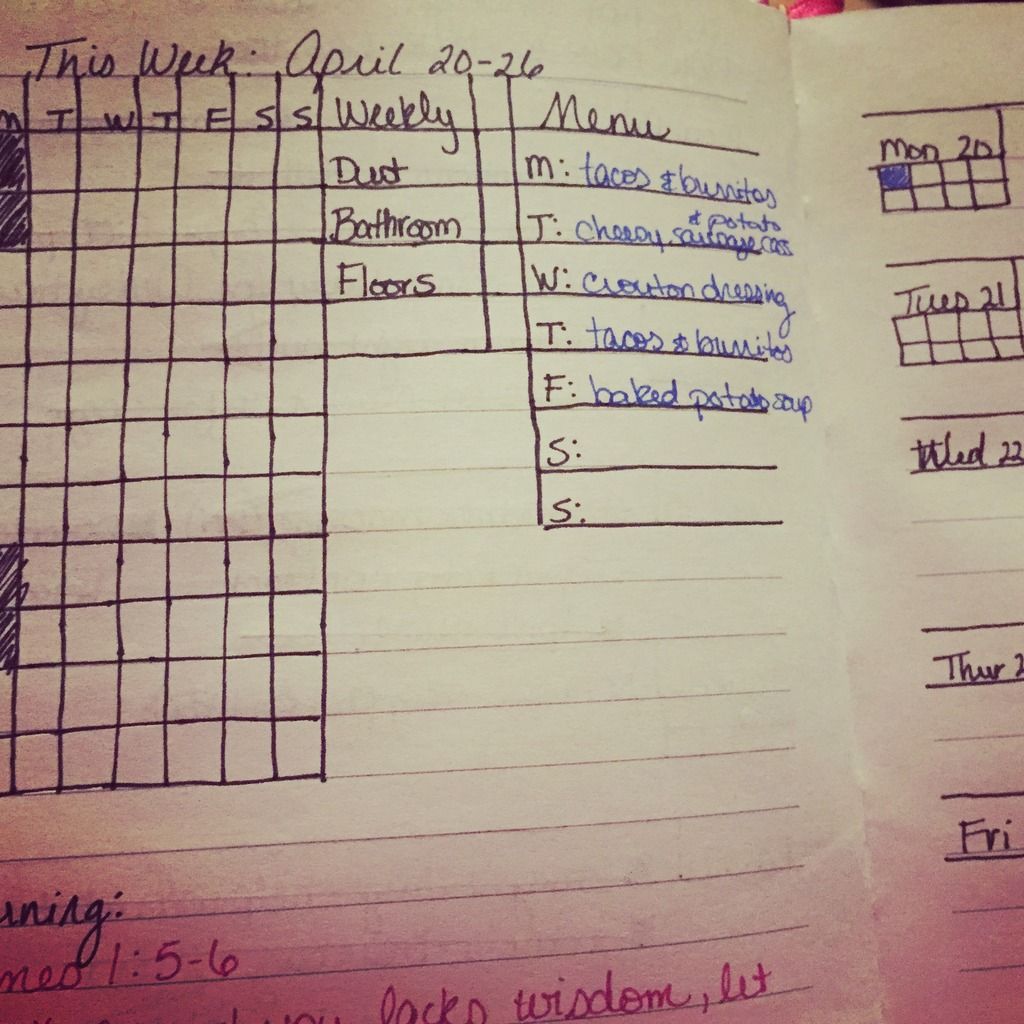 This Week: April 20-26
M T W T F S S Weekly Menu
Dust
Bathroom
Floors
M: tacos & burritos
T: cheesy sausage & potato cass
W: crouton dressing
T: tacos & burritos
F: baked potato soup
S:
S:
Mon 20
Tues 21
Wed 22
Thur 2
Fri
ning:
mes 1:5-6
you lacks wisdom, let